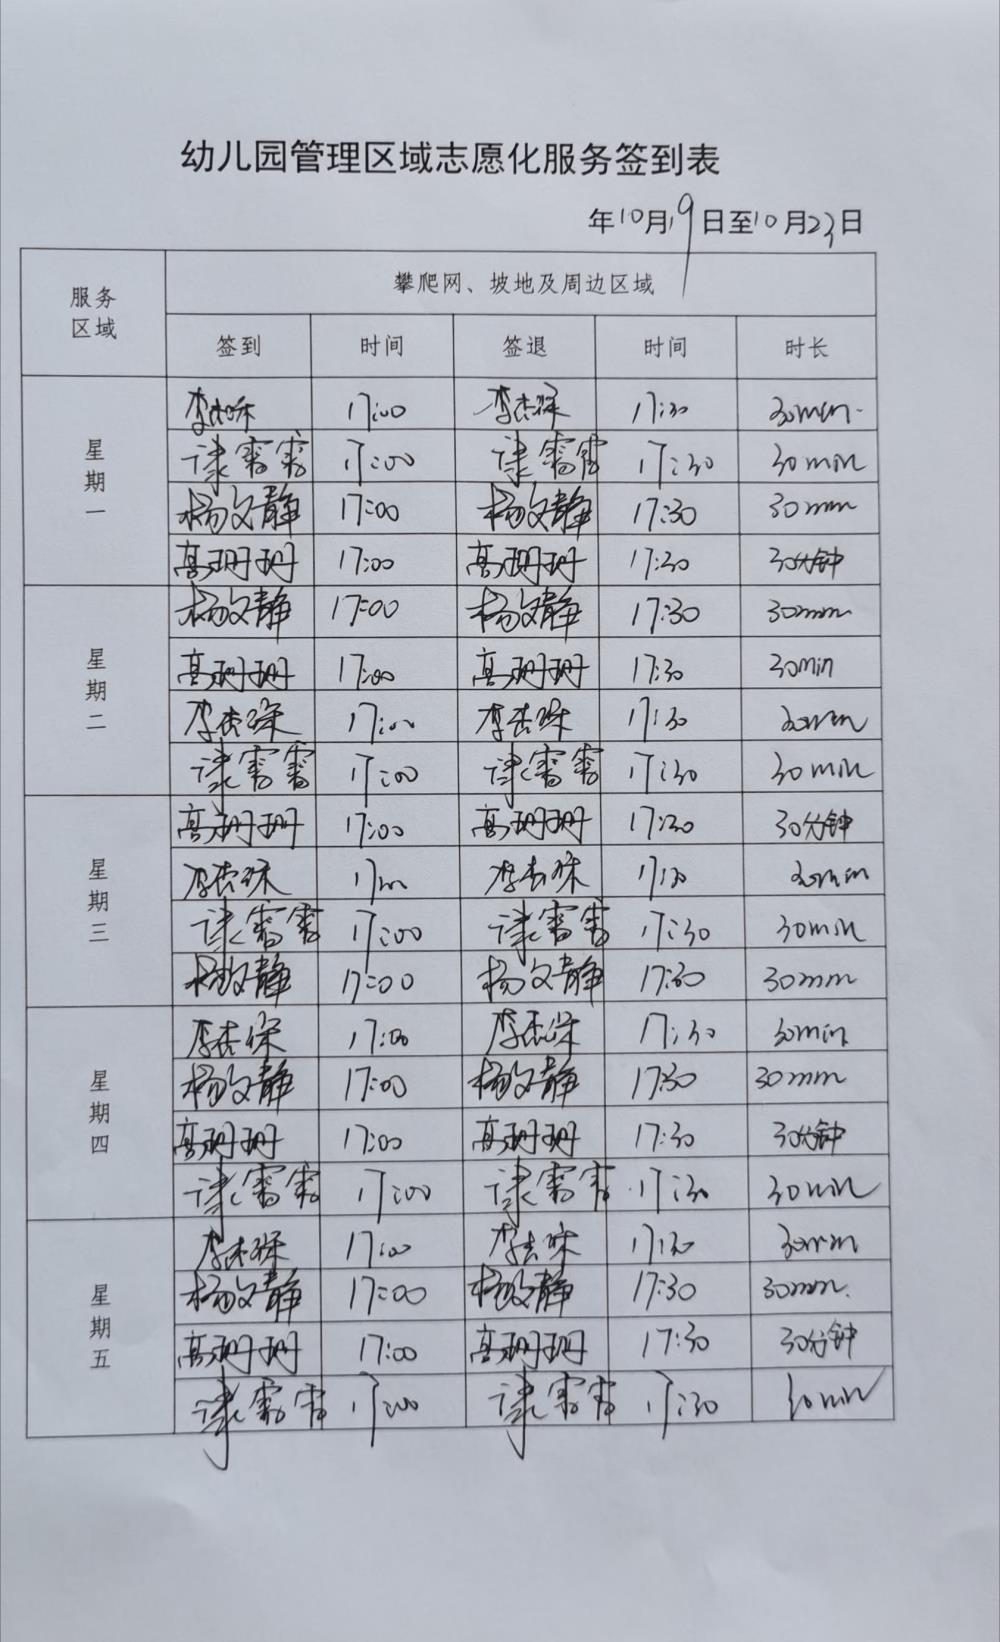 幼儿园管理区域志愿化服务签到表
年10月19日至10月23日
服务区域 攀爬网、坡地及周边区域
签到 时间 签退 时间 时长
星期一
李杰 17:00 李杰 17:30 30min.
雷雷 17:00 雷雷 17:30 30min
杨文静 17:00 杨文静 17:30 30min
高珊珊 17:00 高珊珊 17:30 30分钟
星期二
杨文静 17:00 杨文静 17:30 30min
高珊珊 17:00 高珊珊 17:30 30min
李杰 17:00 李杰 17:30 30min
雷雷 17:00 雷雷 17:30 30min
星期三
高珊珊 17:00 高珊珊 17:30 30分钟
李杰 17:00 李杰 17:30 30min
雷雷 17:00 雷雷 17:30 30min
杨文静 17:00 杨文静 17:30 30min
星期四
李杰 17:00 李杰 17:30 30min
杨文静 17:00 杨文静 17:30 30min
高珊珊 17:00 高珊珊 17:30 30分钟
雷雷 17:00 雷雷 17:30 30min
星期五
李杰 17:00 李杰 17:30 30min
杨文静 17:00 杨文静 17:30 30min.
高珊珊 17:00 高珊珊 17:30 30分钟
雷雷 17:00 雷雷 17:30 30min